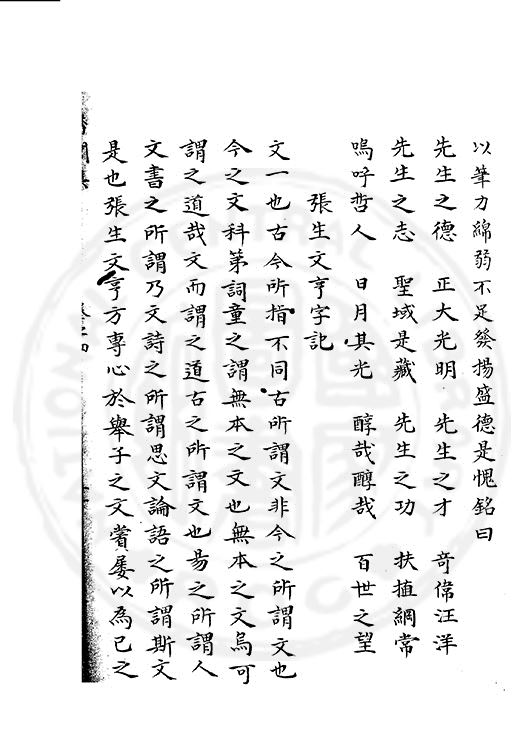 以筆力綿弱不足發揚盛德是愧銘曰
先生之德 正大光明 先生之才 奇偉汪洋
先生之志 聖域是藏 先生之功 扶植綱常
嗚呼哲人 日月其光 醇哉醇哉 百世之望
張生文亨字記
文一也古今所指不同古所謂文非今之所謂文也
今之文科第詞章之謂無本之文也無本之文烏可
謂之道哉文而謂之道古之所謂文也易之所謂人
文書之所謂乃文詩之所謂思文論語之所謂斯文
是也張生文亨方專心於舉子之文嘗屢以為已之